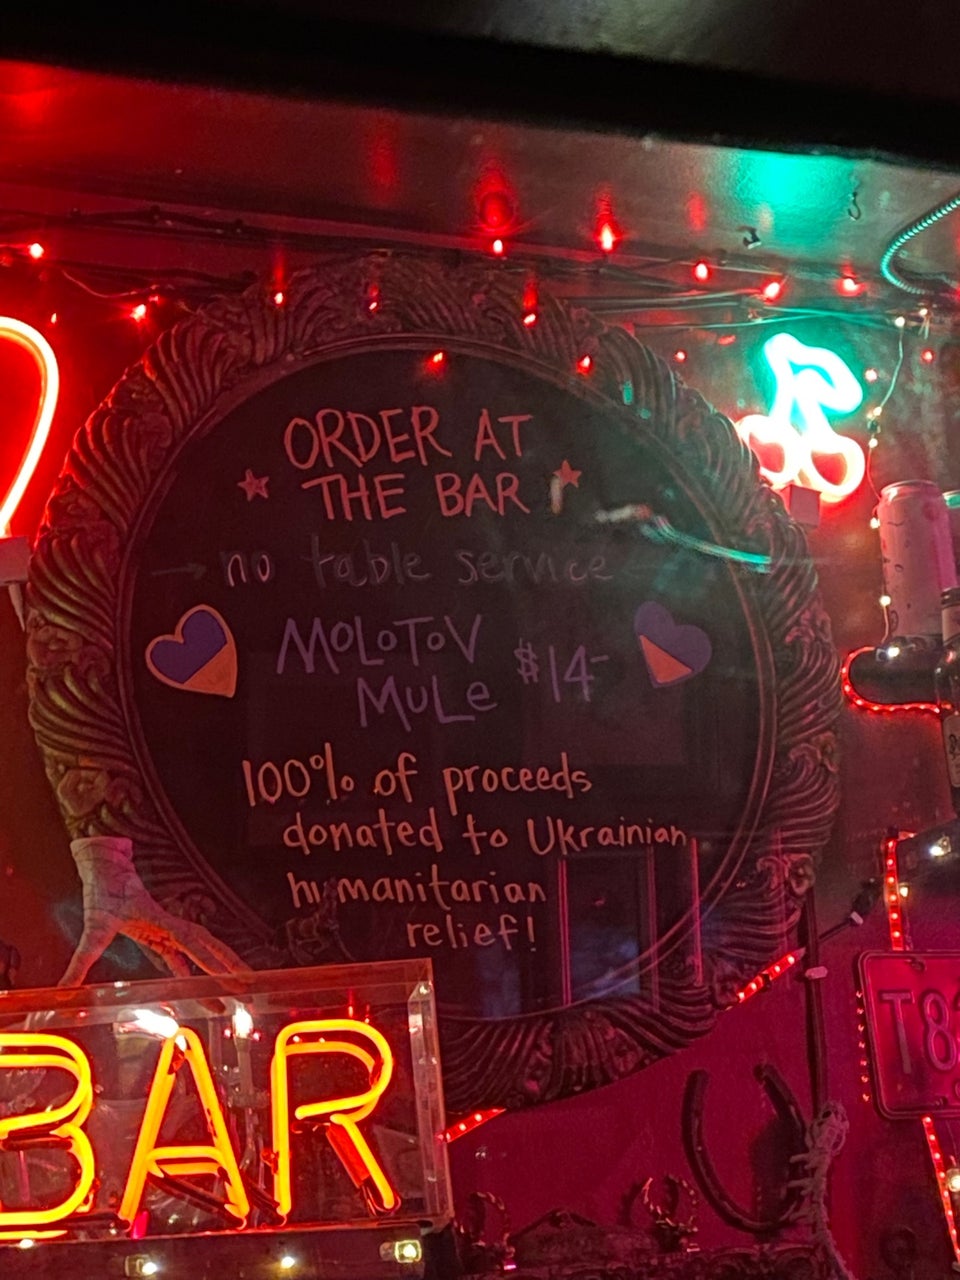 ORDER AT
THE BAR
no table service
MOLOTOV
MULe $14-
100% of proceeds
donated to Ukrainian
humanitarian
relief!
BAR
T8